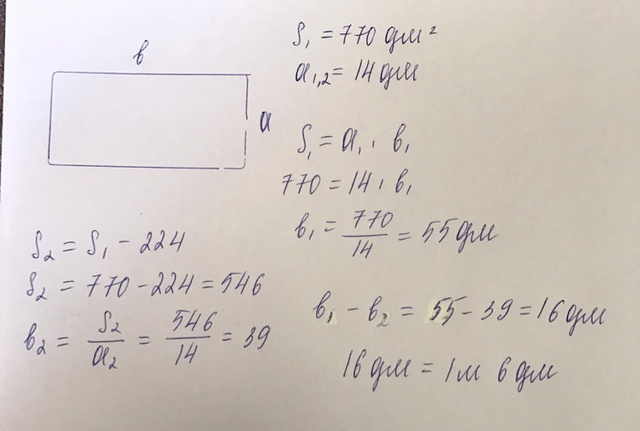 в
a
S₁ = 770 дм²
a₁,₂ = 14 дм
S₁ = a₁ · в₁
770 = 14 · в₁
в₁ = 770/14 = 55 дм
S₂ = S₁ - 224
S₂ = 770 - 224 = 546
в₂ = S₂/a₂ = 546/14 = 39
в₁ - в₂ = 55 - 39 = 16 дм
16 дм = 1м 6 дм